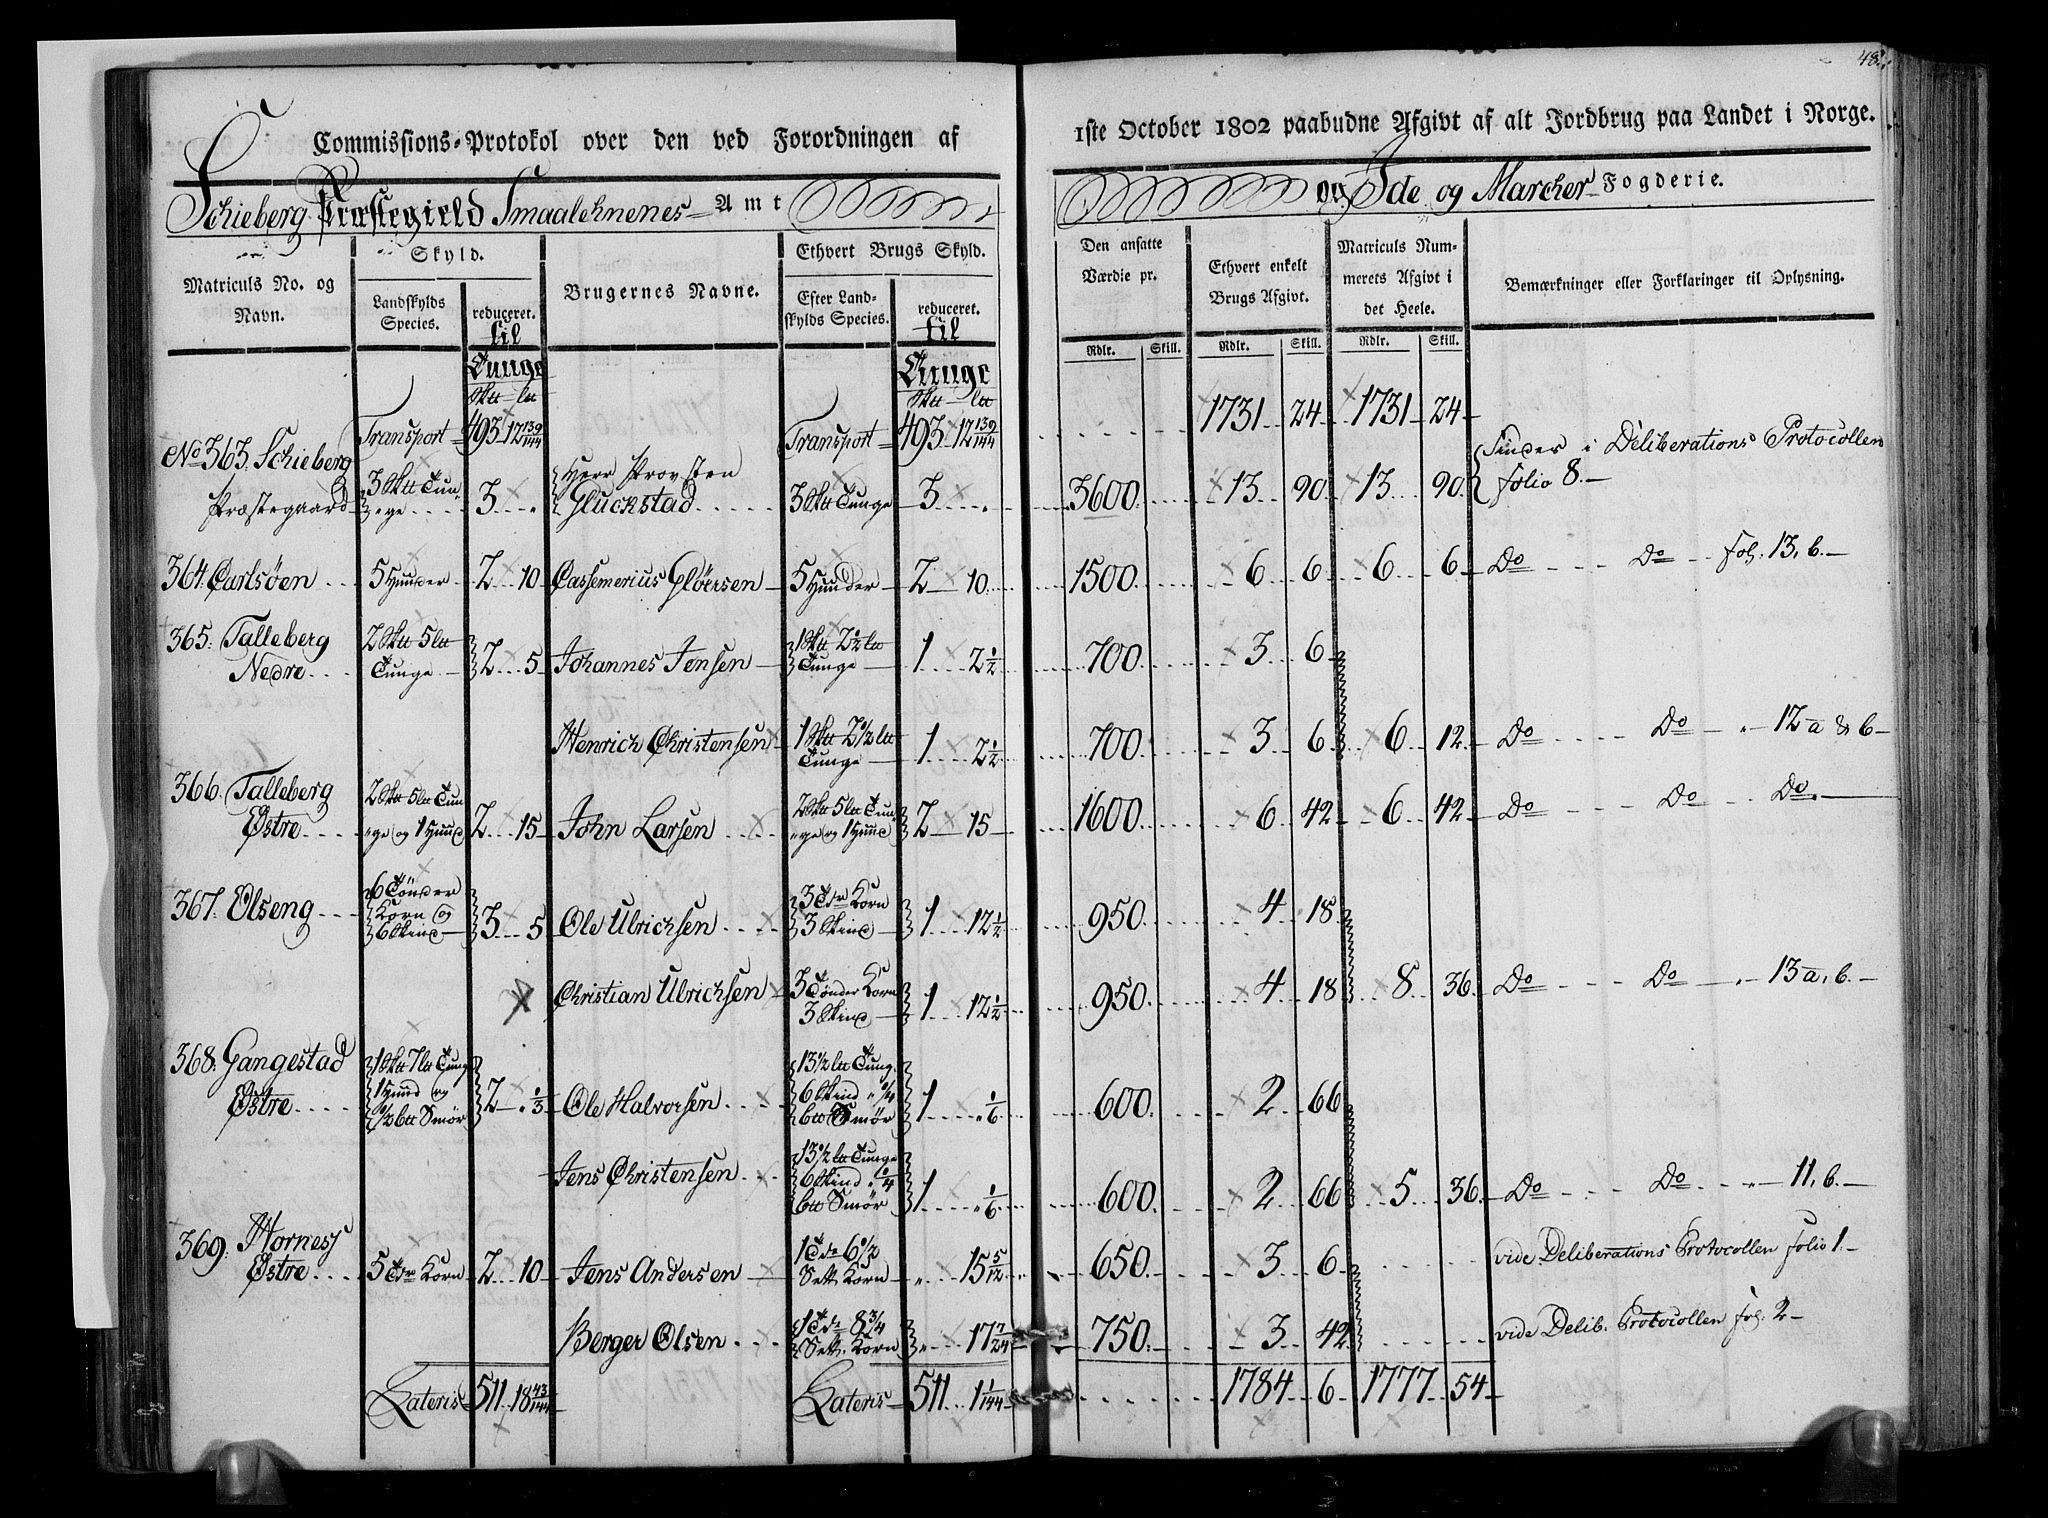 48.
Commissions-Protokol over den ved Forordningen af 1ste October 1802 paabudne Afgivt af alt Jordbrug paa Landet i Norge.
Schieberg Præstegield Smaalehnenes Amt og Ide og Marcher Fogderie.
Matriculs No. og Navn.
Skyld.
Landskylds Species.
reduceret. til Tunge
Brugernes Navne.
Ethvert Brugs Skyld.
Efter Landskylds Species.
reduceret. til Tunge
Den ansatte Værdie pr.
Ethvert enkelt Brugs Afgivt.
Matriculs Nummerets Afgivt i det Heele.
Bemærkninger eller Forklaringer til Oplysning.
Rdlr. Skill. Rdlr. Skill. Rdlr. Skill.
Transport 493 12 139/144 Transport 493 12 139/144 1731 24 1731 24
No 363. Schieberg Præstegaard 3 Sktt Tunge 3 Herr Provsten Gluckstad 3 Sktt Tunge 3 3600 13 90 13 90 Findes i Deliberations Protocollen folio 8.
364. Carlsøen 5 Huuder 2 10 Cassemerius Gløersen 5 Huuder 2 10 1500 6 6 6 6 Do Do fol. 13, b.
365. Talleberg Nedre 2 Sktt 5 ltt Tunge 2 5 Johannes Jensen 1 Sktt 2 1/2 ltt Tunge 1 2 1/2 700 3 6
Henrich Christensen 1 Sktt 2 1/2 ltt Tunge 1 2 1/2 700 3 6 6 12 Do Do " 12 a & b
366. Talleberg Østre 2 Sktt 5 ltt Tunge og 1 Huud 2 15 John Larsen 2 Sktt 5 ltt Tunge og 1 Huud 2 15 1600 6 42 6 42 Do Do Do.
367. Olseng 6 Tønder Korn og 6 Skind 3 5 Ole Ulrichsen 3 Tdr Korn 3 Skind 1 12 1/2 950 4 18
Christian Ulrichsen 3 Tønder Korn 3 Skind 1 12 1/2 950 4 18 8 36 Do Do " 13 a, b.
368. Gangestad Østre 1 Sktt 7 ltt Tunge 1 Huud og 1/2 btt Smør 2 " 1/3 Ole Halvorsen 13 1/2 ltt Tung. 6 Skind " 1/4 btt Smør 1 " 1/6 600 2 66
Jens Christensen 13 1/2 ltt Tunge 6 Skind " 1/4 btt Smør 1 " 1/6 600 2 66 5 36 Do Do " 11, b.
369. Hornes Østre 5 Tdr Korn 2 10 Jens Andersen 1 Tde 6 1/2 Sett. Korn " 15 5/12 650 3 6 vide Deliberations Protocollen folio 1.
Berger Olsen 1 Tde 8 3/4 Sett. Korn " 17 7/24 750 3 42 vide Delib. Protocollen fol. 2
Lateris 511 18 43/144 Lateris 511 1 1/144 1784 6 1777 54